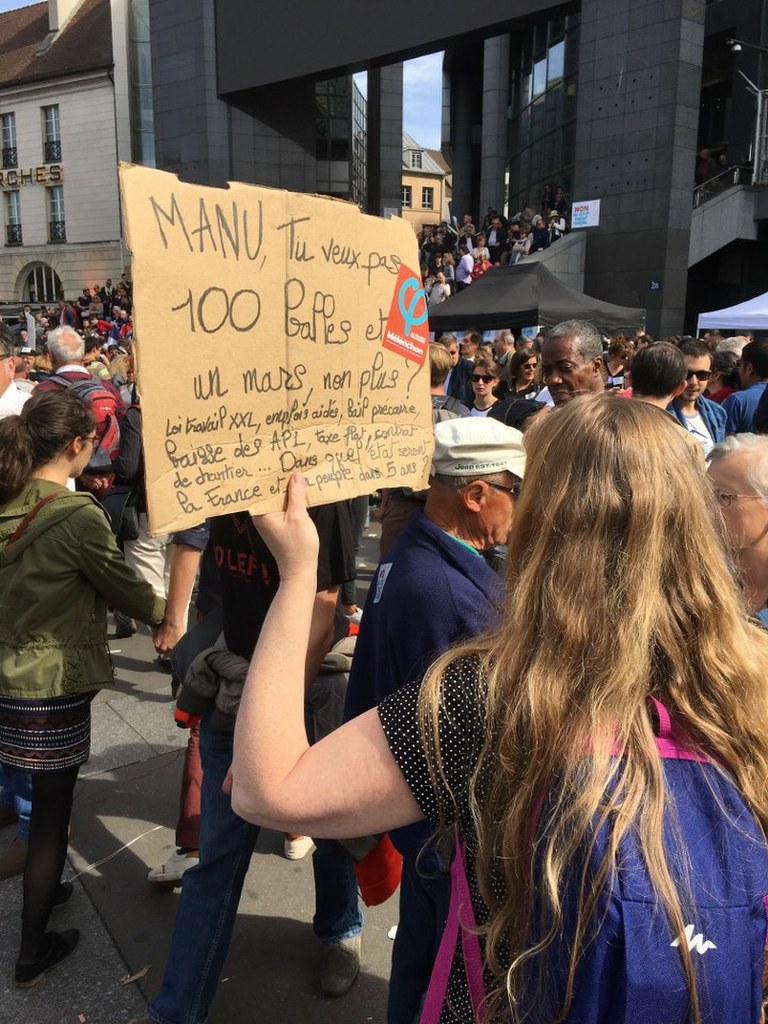 MANU, Tu veux pas
100 balles et
un mars, non plus ?
Loi travail XXL, emplois aidés, bail précaire,
baisse des APL, taxe flat, contrat
de chantier ... Dans quel état seront
la France et son peuple dans 5 ans ?
φ
Mélenchon
RCHES
NON
Jeep EST. 1941
O LEF